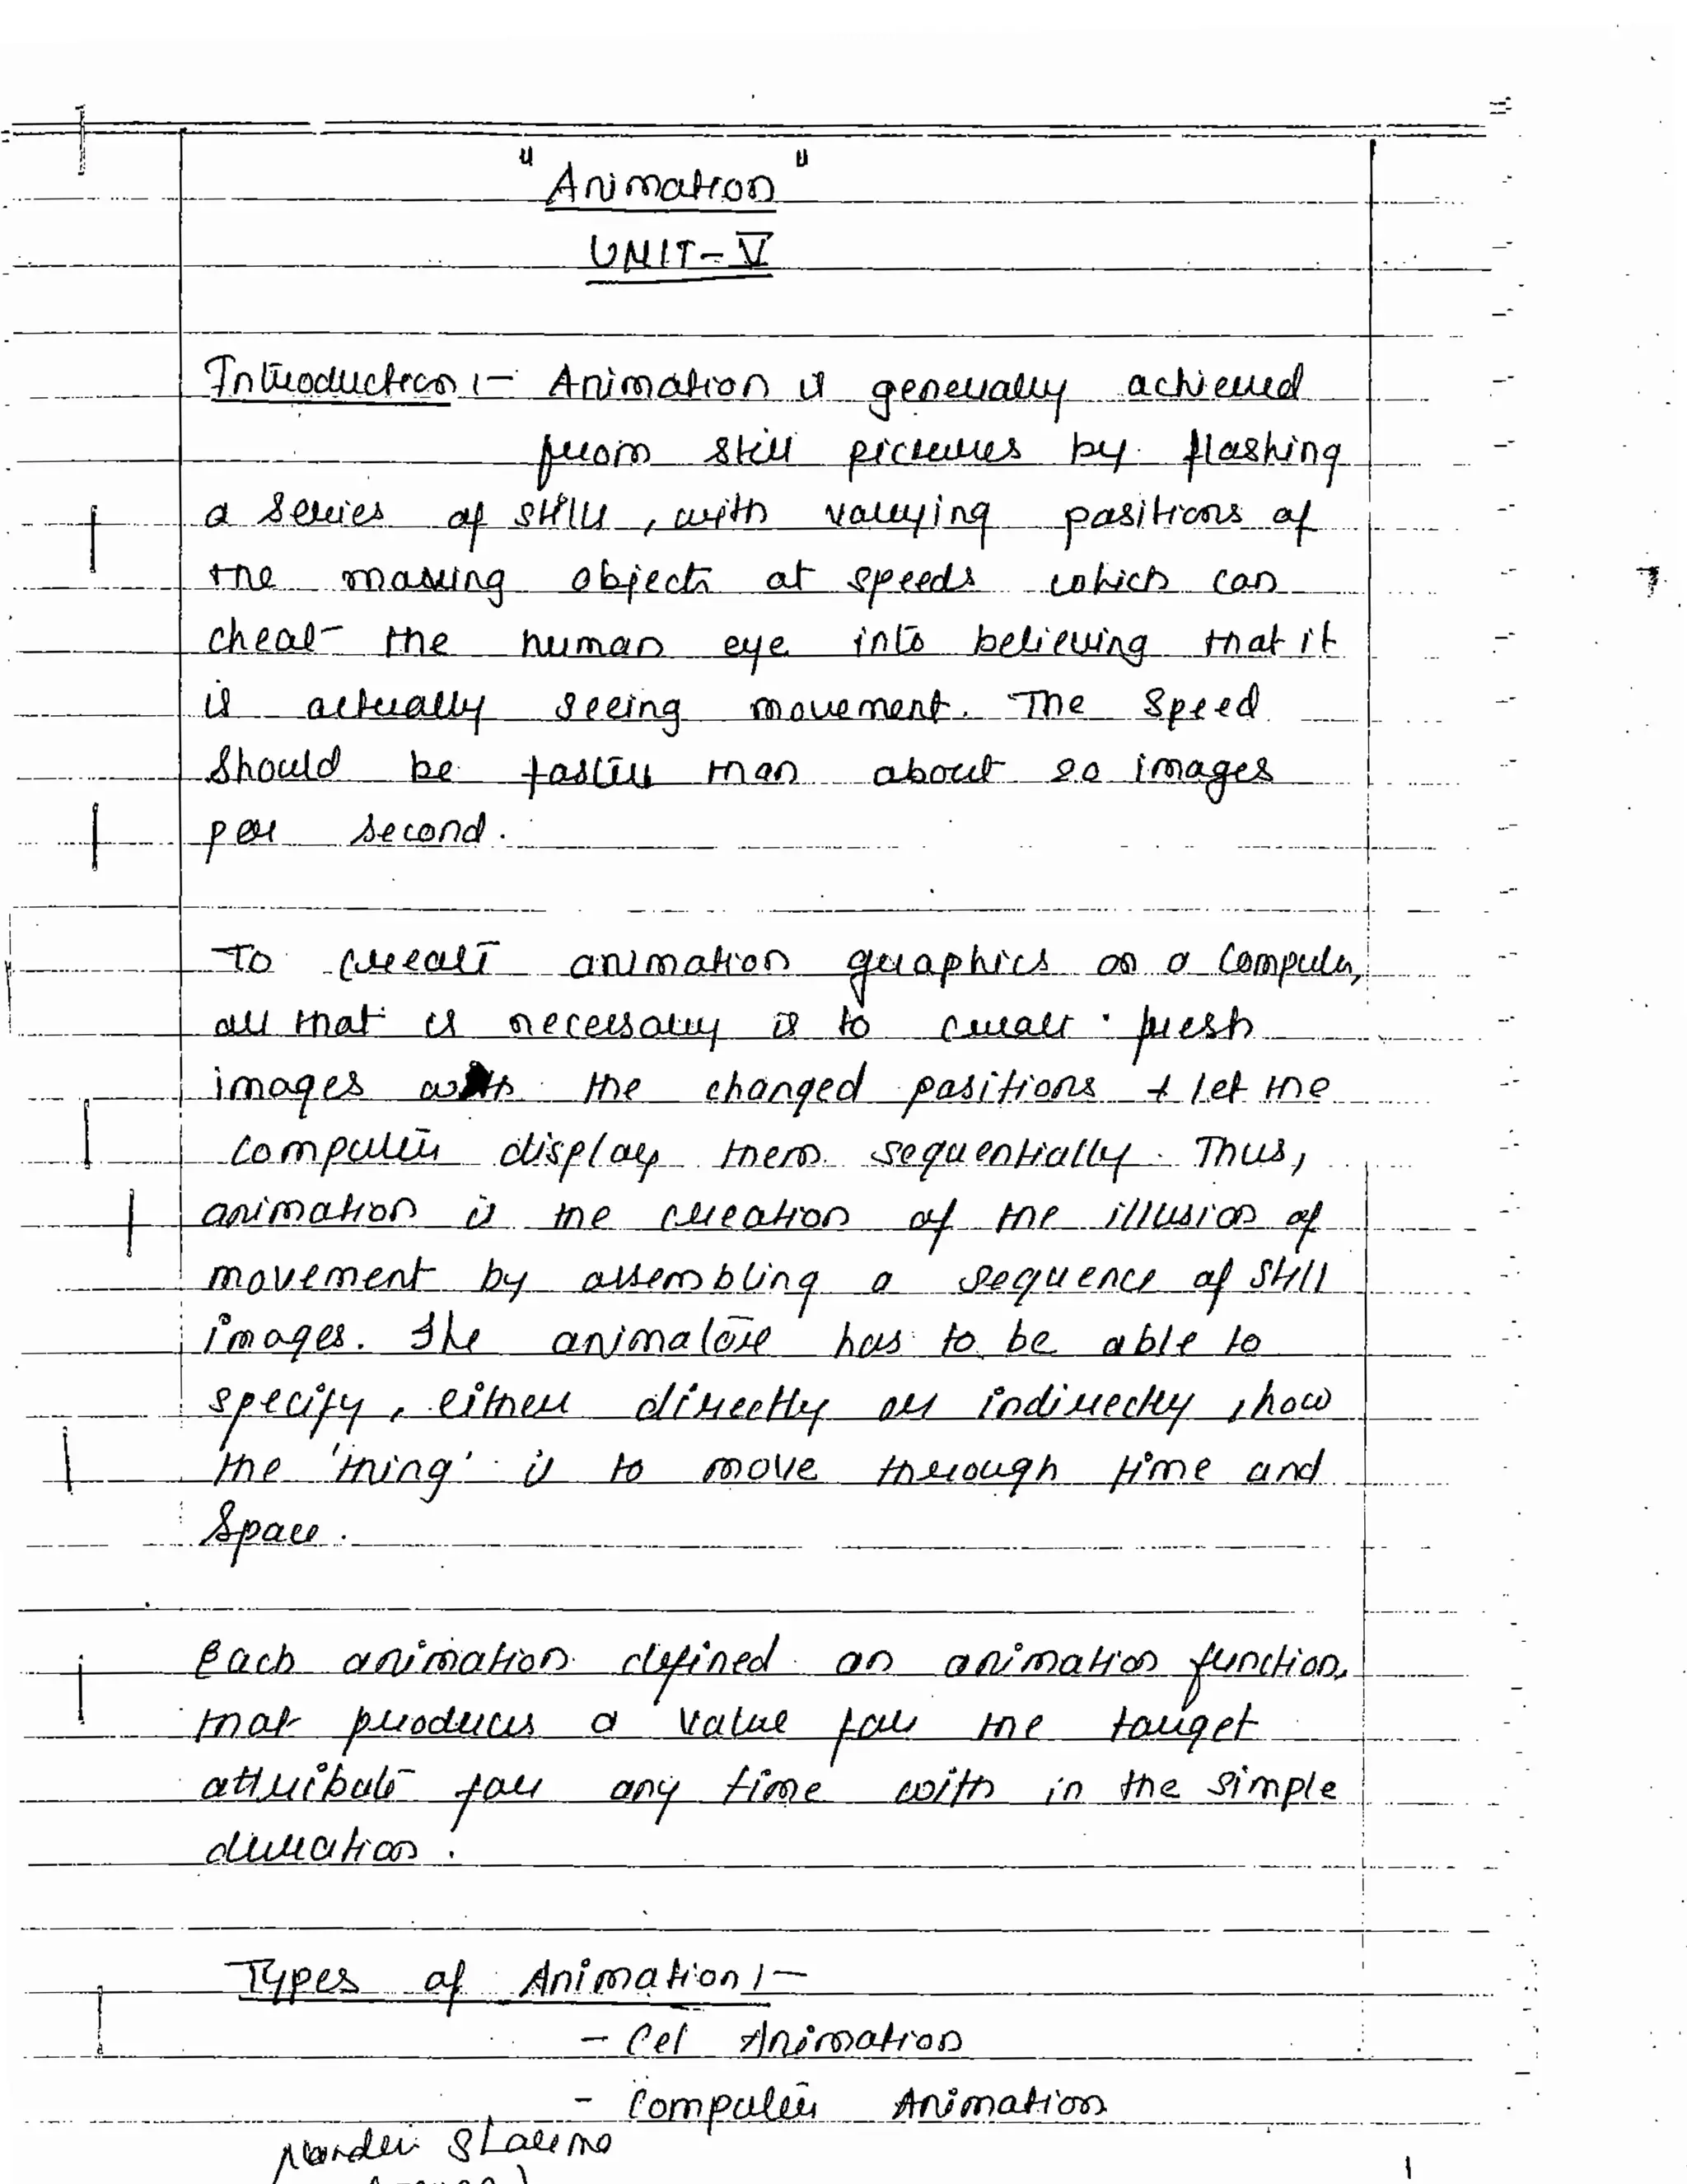 "Animation"
UNIT-V
Introduction :- Animation is generally achieved
from still pictures by flashing
a series of stills, with varying positions of
the moving objects at speeds which can
cheat the human eye into believing that it
is actually seeing movement. The speed
should be faster than about 20 images
per second.
To create animation graphics on a computer,
all that is necessary is to create fresh
images with the changed positions & let the
computer display them sequentially. Thus,
animation is the creation of the illusion of
movement by assembling a sequence of still
images. The animator has to be able to
specify, either directly or indirectly, how
the 'thing' is to move through time and
space.
Each animation defined an animation function,
that produces a value for the target
attribute for any time with in the simple
duration.
Types of Animation :-
- Cel Animation
- Computer Animation
Sharma
1